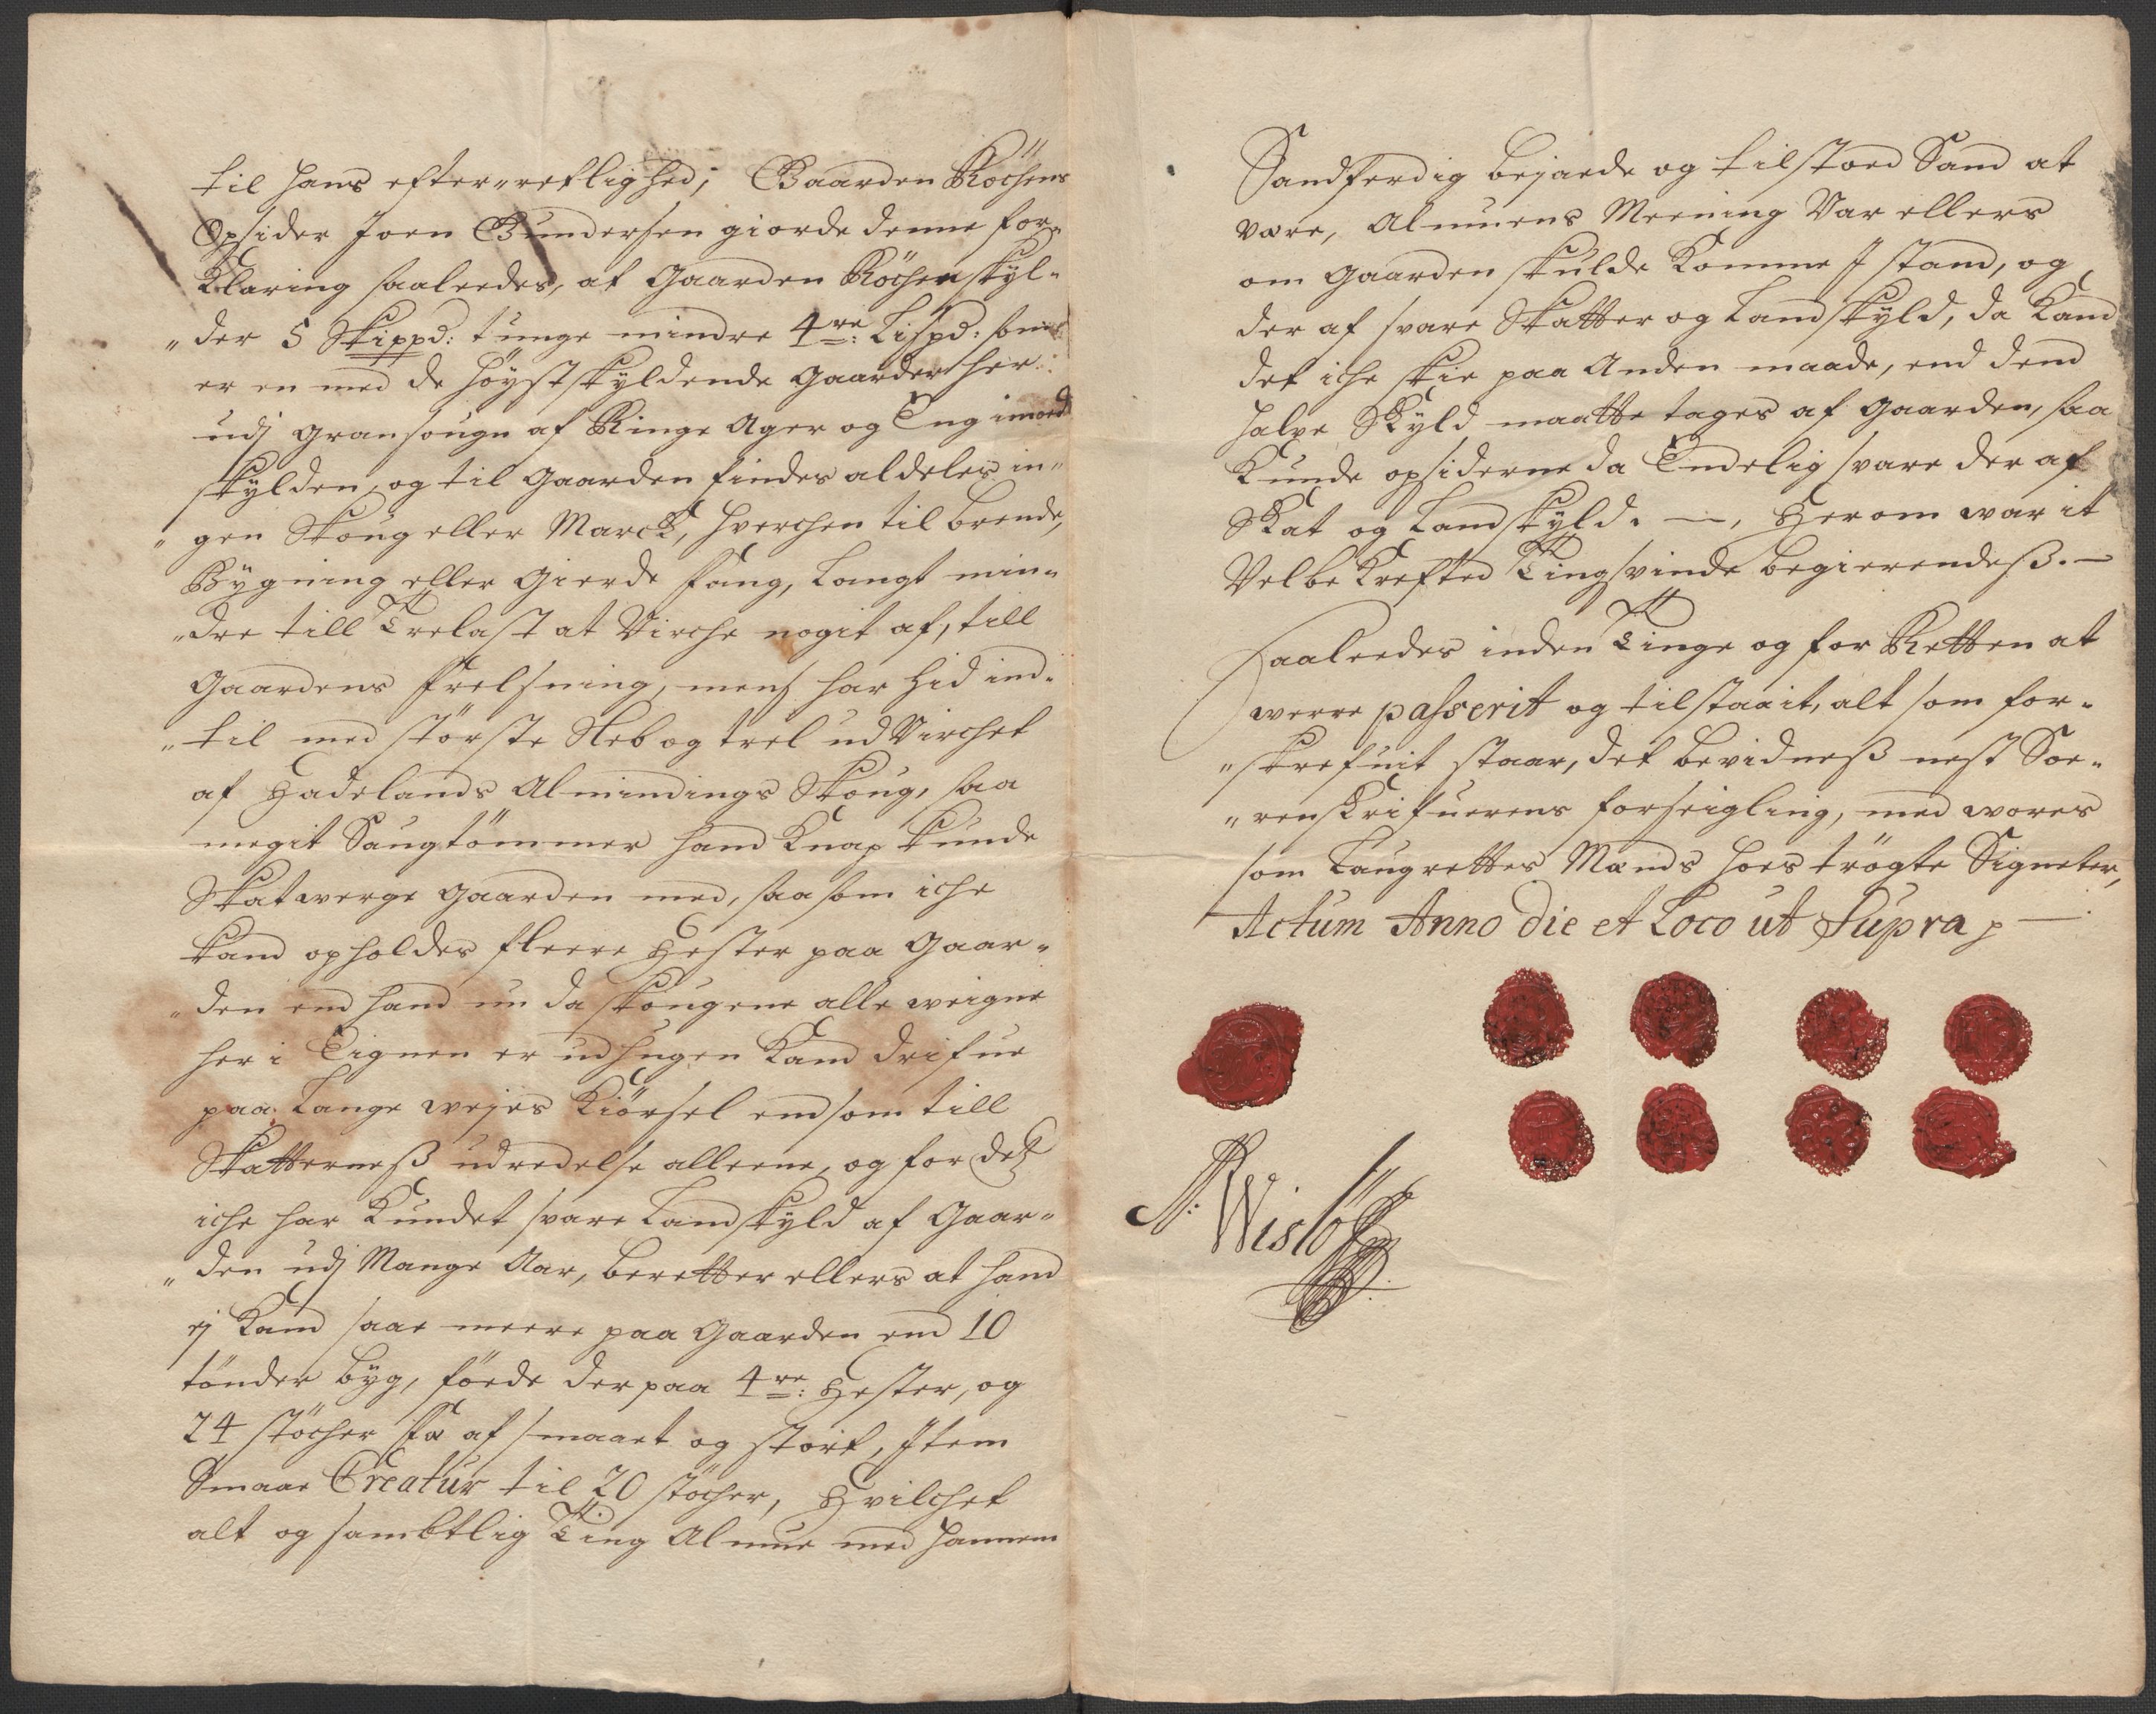 til hans efter„retlighed; Gaarden Röchens
Opsider Joen Gundersen giorde denne for„
Klaring saaleedes, at Gaarden Röchen skyl„
„der 5 Skippd: tunge mindre 4re: Lispd: som
er en med de höystskyldende Gaarder her
udj Gransougn af Ringe Ager og Eng imod
skylden, og til Gaarden findes aldeles in„
„gen Skoug eller Marck, hverchen til brende,
Bygning eller Gierde fang, langt min„
„dre till Trelast at Virche nogit af, till
Gaardens frelsning, mens har hid ind„
„til med störste Sleb og trel ud Virchet
af Hadelands Almindings Skoug, saa
megit Saugtömmer hand Knap kunde
Skatwerge Gaarden med, saasom iche
kand opholdes fleere Hester paa Gaar„
„den end hand nu da skougene alle weigne
her i Eignen er udhugen Kand drifue
paa lange wejes Kiörsel end som till
Skatterneß udredelse alleene, og for det
iche har Kundet svare Landskyld af Gaar„
„den udj Mange Aar, beretter ellers at hand
ej Kand saae meere paa Gaarden end 10
tönder byg, föede der paa 4re: Hester, og
24 stöcher Fæ af smaaet og stort, Item
Smaae Creatur til 20 stöcher, Hvilchet
alt og sambtlig Ting Almue med hannem
Sandferdig bejaede og tilstoed Sand at
være, Almuens Meening Var ellers
om Gaarden skulde Komme J stand, og
der af svare Skatter og Landskyld, da Kand
det iche skie paa Anden maade, end dend
halve Skyld maatte tages af Gaarden, saa
Kunde opsiderne da Endelig svare der af
Skat og Landskyld. —, Herom war it
Velbekrefted Tingsvinde begierendeß. —
Saaleedes inden Tinge og for Retten at
werre passerit og tilstaait, alt som for„
„skrefuit staar, det bevidneß nest Soe„
„renskrifuerens forseigling, med wores
som Laugrettes Mænds hoes trögte Signeter,
Actum Anno die et Loco ut Supra p —